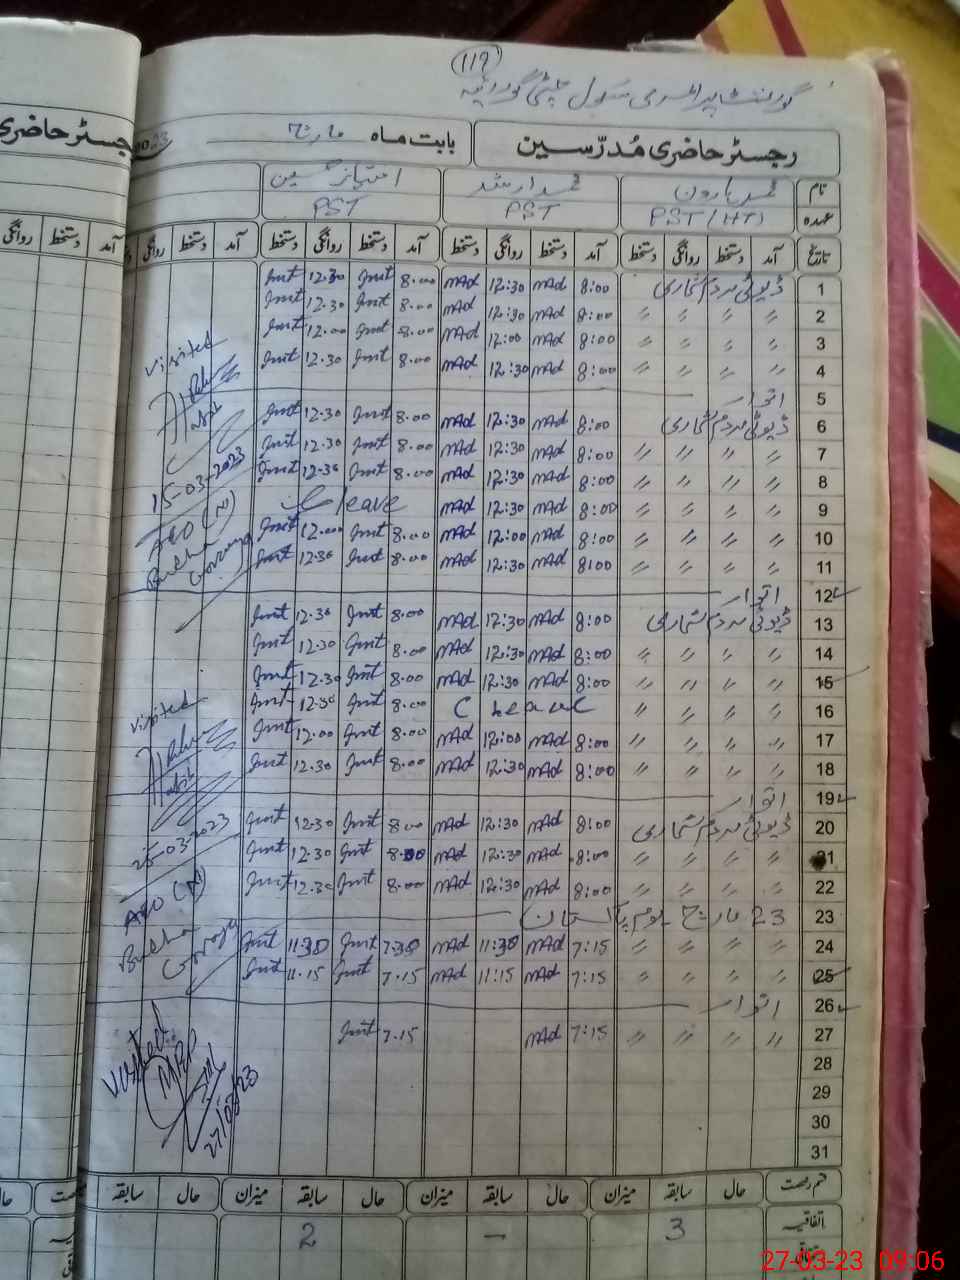 119
گورنمنٹ پرائمری سکول چٹی گورائیہ
رجسٹر حاضری مدرّسین بابت ماہ مارچ 2023
نام ہارون محمد ارشد امتیاز حسین
عہدہ PST/HT PST PST
تاریخ آمد دستخط روانگی دستخط آمد دستخط روانگی دستخط آمد دستخط روانگی دستخط آمد دستخط روانگی
1 ڈیوٹی مردم شماری 8:00 mAd 12:30 mAd 8.00 Imt 12.30 Imt
2 〃 〃 〃 〃 8:00 mAd 12:30 mAd 8.00 Imt 12.30 Imt
3 〃 〃 〃 〃 8:00 mAd 12:00 mAd 8.00 Imt 12.00 Imt
4 〃 〃 〃 〃 8:00 mAd 12:30 mAd 8.00 Imt 12.30 Imt
5 اتوار
6 ڈیوٹی مردم شماری 8:00 mAd 12:30 mAd 8.00 Imt 12.30 Imt
7 〃 〃 〃 〃 8:00 mAd 12:30 mAd 8.00 Imt 12.30 Imt
8 〃 〃 〃 〃 8:00 mAd 12:30 mAd 8.00 Imt 12.30 Imt
9 〃 〃 〃 〃 8:00 mAd 12:30 mAd leave
10 〃 〃 〃 〃 8:00 mAd 12:00 mAd 8.00 Imt 12.00 Imt
11 〃 〃 〃 〃 8:00 mAd 12:30 mAd 8.00 Imt 12.30 Imt
12 اتوار
13 ڈیوٹی مردم شماری 8:00 mAd 12:30 mAd 8.00 Imt 12.30 Imt
14 〃 〃 〃 〃 8:00 mAd 12:30 mAd 8.00 Imt 12.30 Imt
15 〃 〃 〃 〃 8:00 mAd 12:30 mAd 8.00 Imt 12.30 Imt
16 〃 〃 〃 〃 C Leave 8.00 Imt 12.30 Imt
17 〃 〃 〃 〃 8:00 mAd 12:00 mAd 8.00 Imt 12.00 Imt
18 〃 〃 〃 〃 8:00 mAd 12:30 mAd 8.00 Imt 12.30 Imt
19 اتوار
20 ڈیوٹی مردم شماری 8:00 mAd 12:30 mAd 8.00 Imt 12.30 Imt
21 〃 〃 〃 〃 8:00 mAd 12:30 mAd 8.00 Imt 12.30 Imt
22 〃 〃 〃 〃 8:00 mAd 12:30 mAd 8.00 Imt 12.30 Imt
23 23 مارچ یوم پاکستان
24 〃 〃 〃 〃 7:15 mAd 11:30 mAd 7.30 Imt 11.30 Imt
25 〃 〃 〃 〃 7:15 mAd 11:15 mAd 7.15 Imt 11.15 Imt
26 اتوار
27 〃 〃 〃 〃 7:15 mAd 7.15 Imt
28
29
30
31
visited
15-03-2023
AEO (M)
Budha
Goraya
visited
25-03-2023
AEO (M)
Budha
Goraya
Visited
27/03/23
حال سابقہ میزان حال سابقہ میزان حال سابقہ میزان حال سابقہ
اتفاقیہ 3 - 2
27-03-23 09:06